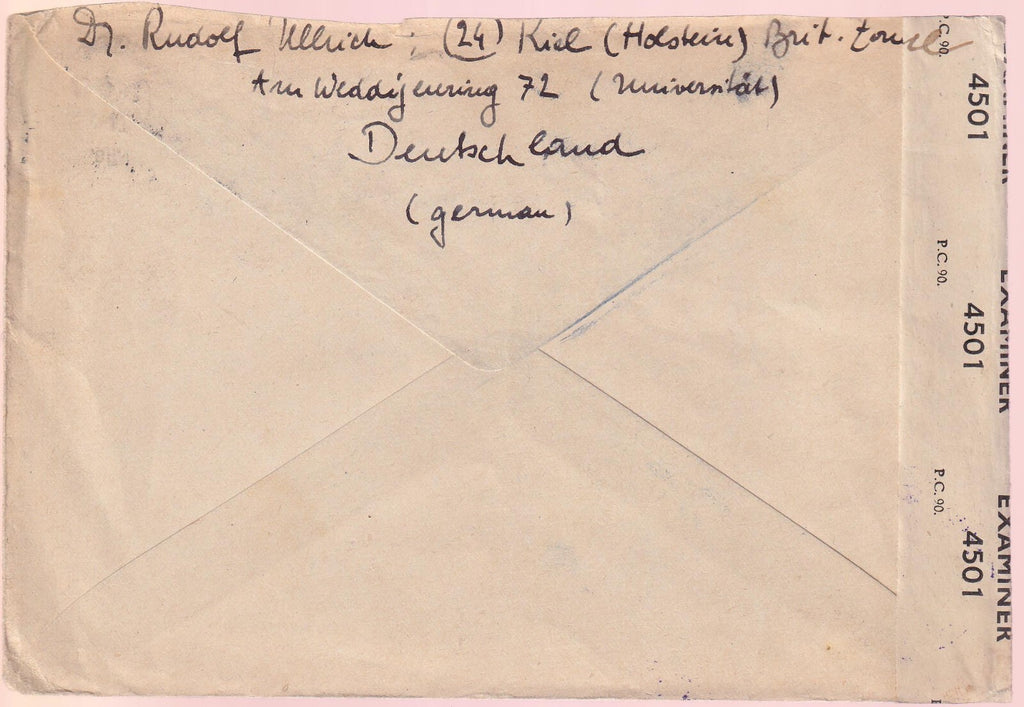 Dr. Rudolf Ullrich; (24) Kiel (Holstein) Brit. Zone
Am Weddigenring 72 (Universität)
Deutschland
(german)
P.C. 90.
4501
EXAMINER
P.C. 90.
4501
EXAMINER
P.C. 90.
4501
EXAMINER